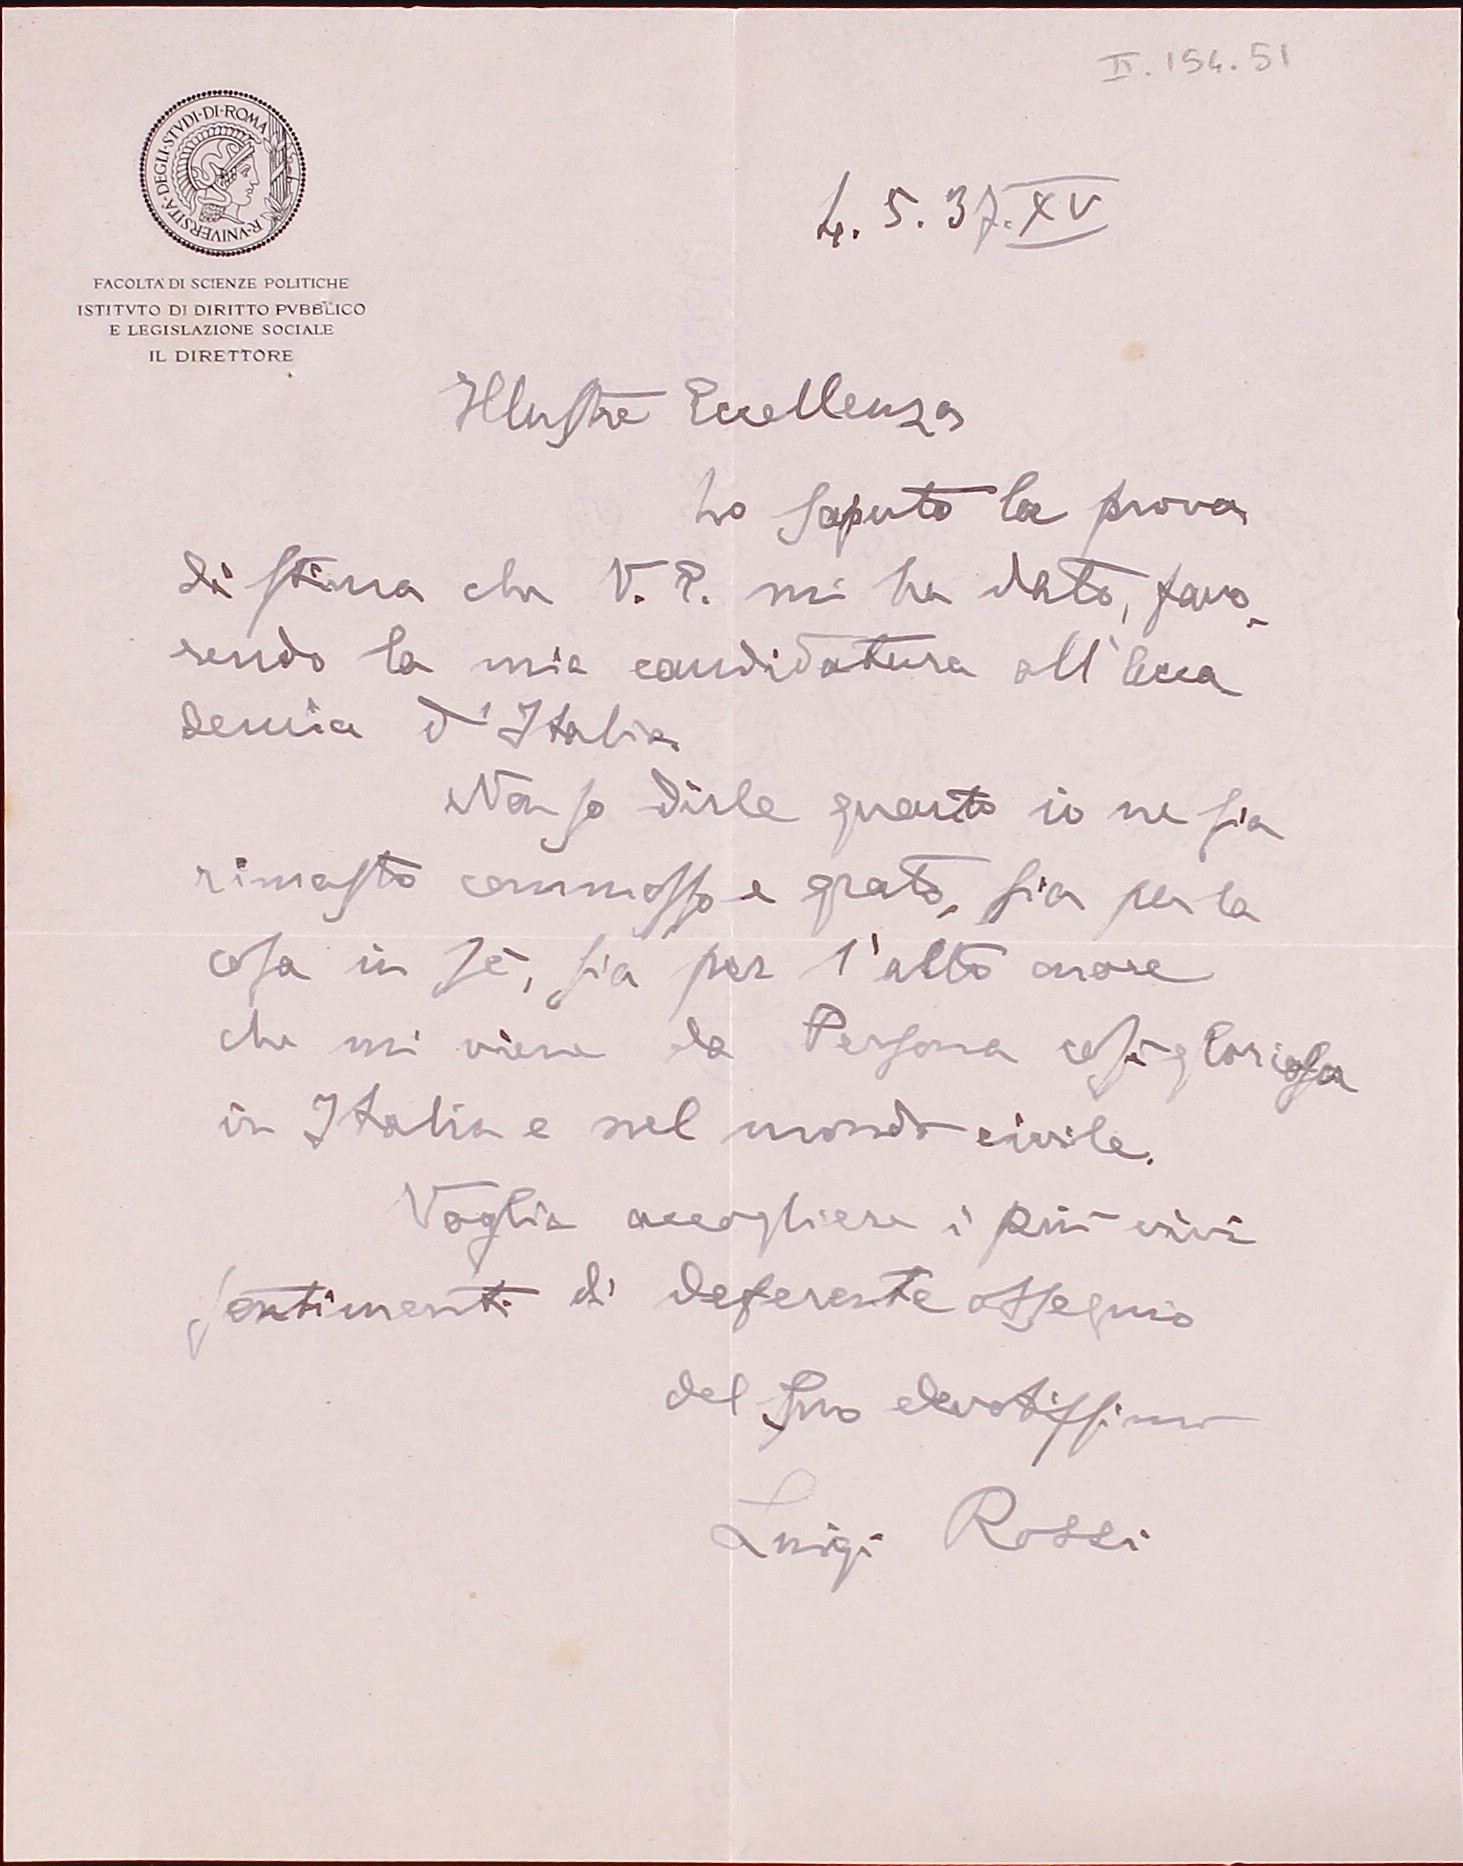 II. 154. 51
R. VNIVERSITÀ · DEGLI · STVDI · DI · ROMA
4. 5. 37. XV
FACOLTA' DI SCIENZE POLITICHE
ISTITVTO DI DIRITTO PVBBLICO
E LEGISLAZIONE SOCIALE
IL DIRETTORE
Illustre Eccellenza
ho saputo la prova
di stima che V. E. mi ha dato, favo-
rendo la mia candidatura all'Acca
demia d'Italia.
Non so dirle quanto io ne sia
rimasto commosso e grato, sia per la
cosa in sè, sia per l'alto onore
che mi viene da Persona così gloriosa
in Italia e nel mondo civile.
Voglia accogliere i più vivi
sentimenti di deferente ossequio
del suo devotissimo
Luigi Rossi